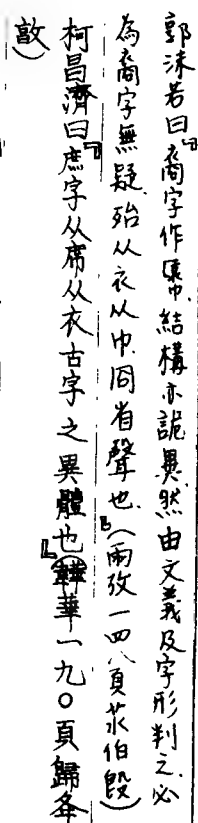 郭沫若曰『裔字作𧞤巾，結構亦詭異，然由文義及字形判之，必
為裔字無疑，殆从衣从巾，冏省聲也。』（兩攷一四八頁 䒭伯𣪘）
柯昌濟曰『庶字从席从衣古字之異體也』（韡華一九〇頁歸夆
敦）